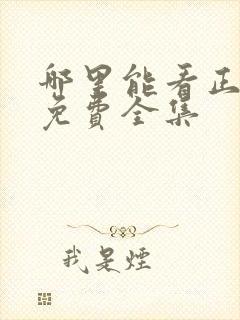 哪里能看正
免費全集
我是煙